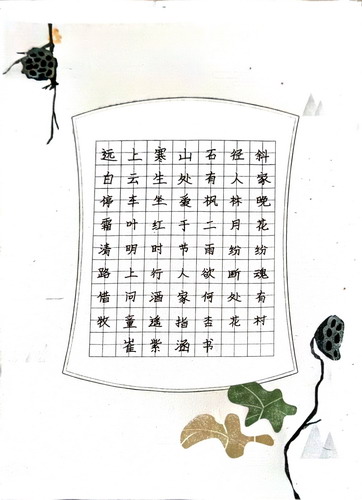 远上寒山石径斜
白云生处有人家
停车坐爱枫林晚
霜叶红于二月花
清明时节雨纷纷
路上行人欲断魂
借问酒家何处有
牧童遥指杏花村
崔紫涵书